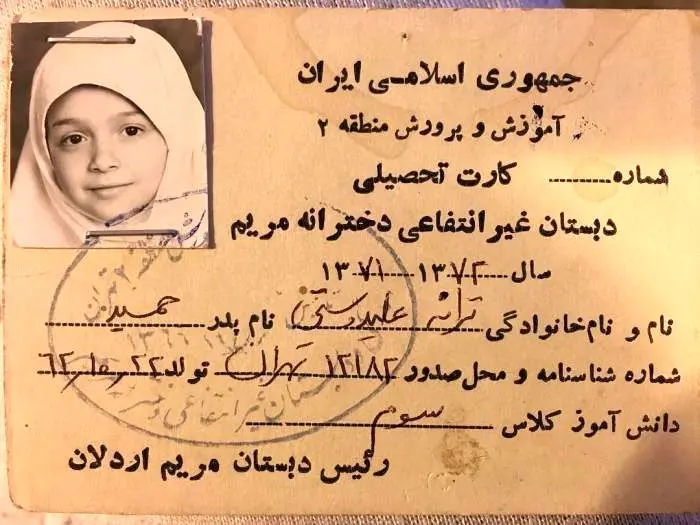 جمهوری اسلامی ایران
آموزش و پرورش منطقه ۲
شماره ........... کارت تحصیلی
دبستان غیر انتفاعی دخترانه مریم
سال ۱۳۷۲ ۱۳۷۱
نام و نام‌خانوادگی ترانه علیدوستی نام پدر حمید
شماره شناسنامه و محل صدور ۱۲۱۸۲ تهران تولد ۶۲
دانش آموز کلاس سوم
رئیس دبستان مریم اردلان